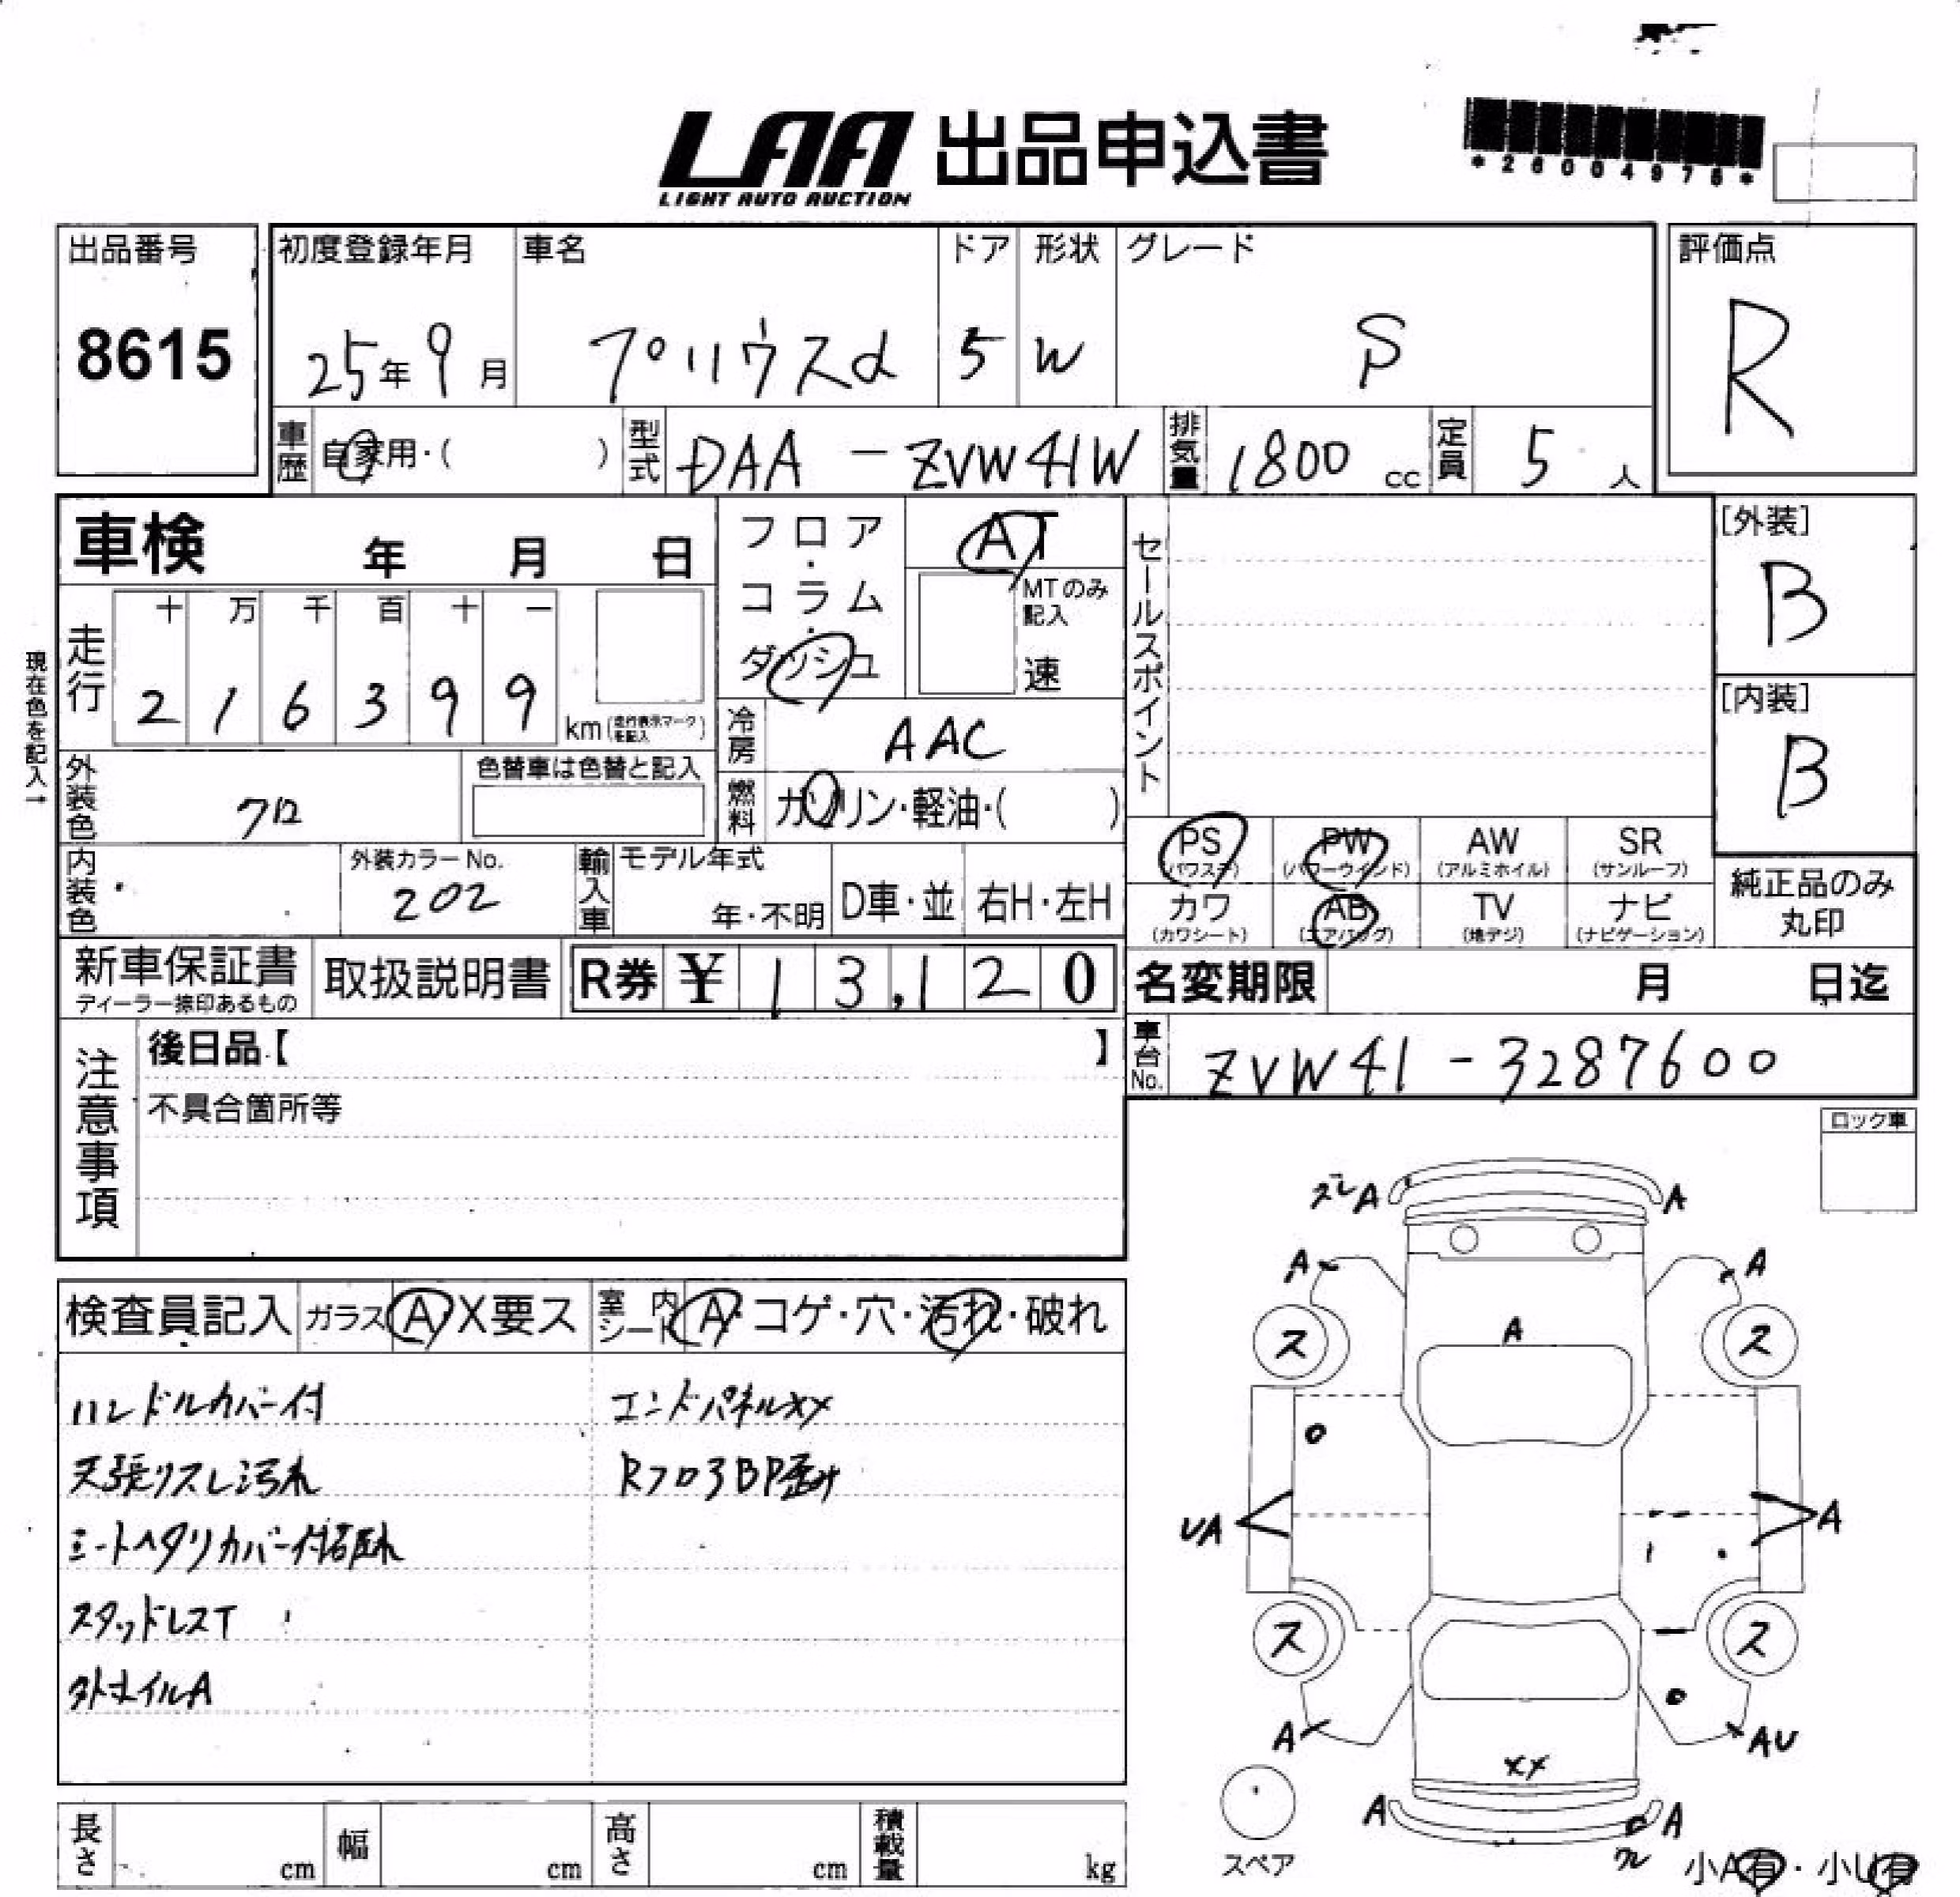 LAA 出品申込書
LIGHT AUTO AUCTION
*26004976*
出品番号
8615
初度登録年月 車名 ドア 形状 グレード
25年9月 プリウスα 5 W S
評価点
R
車歴 自家用・( ) 型式 DAA-ZVW41W 排気量 1800 cc 定員 5 人
車検 年 月 日
フロア・コラム・ダッシュ
AT
MTのみ記入
速
セールスポイント
[外装]
B
[内装]
B
現在色を記入→
走行 十 万 千 百 十 一
2 1 6 3 9 9 km(走行表示マークを記入)
冷房 AAC
燃料 ガソリン・軽油・( )
外装色 クロ
色替車は色替と記入
内装色
外装カラーNo.
202
輸入車 モデル年式
年・不明 D車・並 右H・左H
PS (パワステ) PW (パワーウインド) AW (アルミホイル) SR (サンルーフ)
カワ (カワシート) AB (エアバッグ) TV (地デジ) ナビ (ナビゲーション)
純正品のみ
丸印
新車保証書
ディーラー捺印あるもの
取扱説明書
R券 ¥ 13,120
名変期限 月 日迄
車台No. ZVW41-3287600
注意事項
後日品【 】
不具合箇所等
ロック車
検査員記入 ガラス A X要ス 室内シート A・コゲ・穴・汚れ・破れ
ハンドルカバー付 エンドパネルXX
天張リスレ汚れ Rフロア BP歪み
シートヘタリカバー付
スタッドレスT
外ホイルA
ズレ A A
A A
A
ス ス
UA A
ス ス
A AU
XX
A A
ワレ
スペア
小A有・小U有
長さ cm 幅 cm 高さ cm 積載量 kg